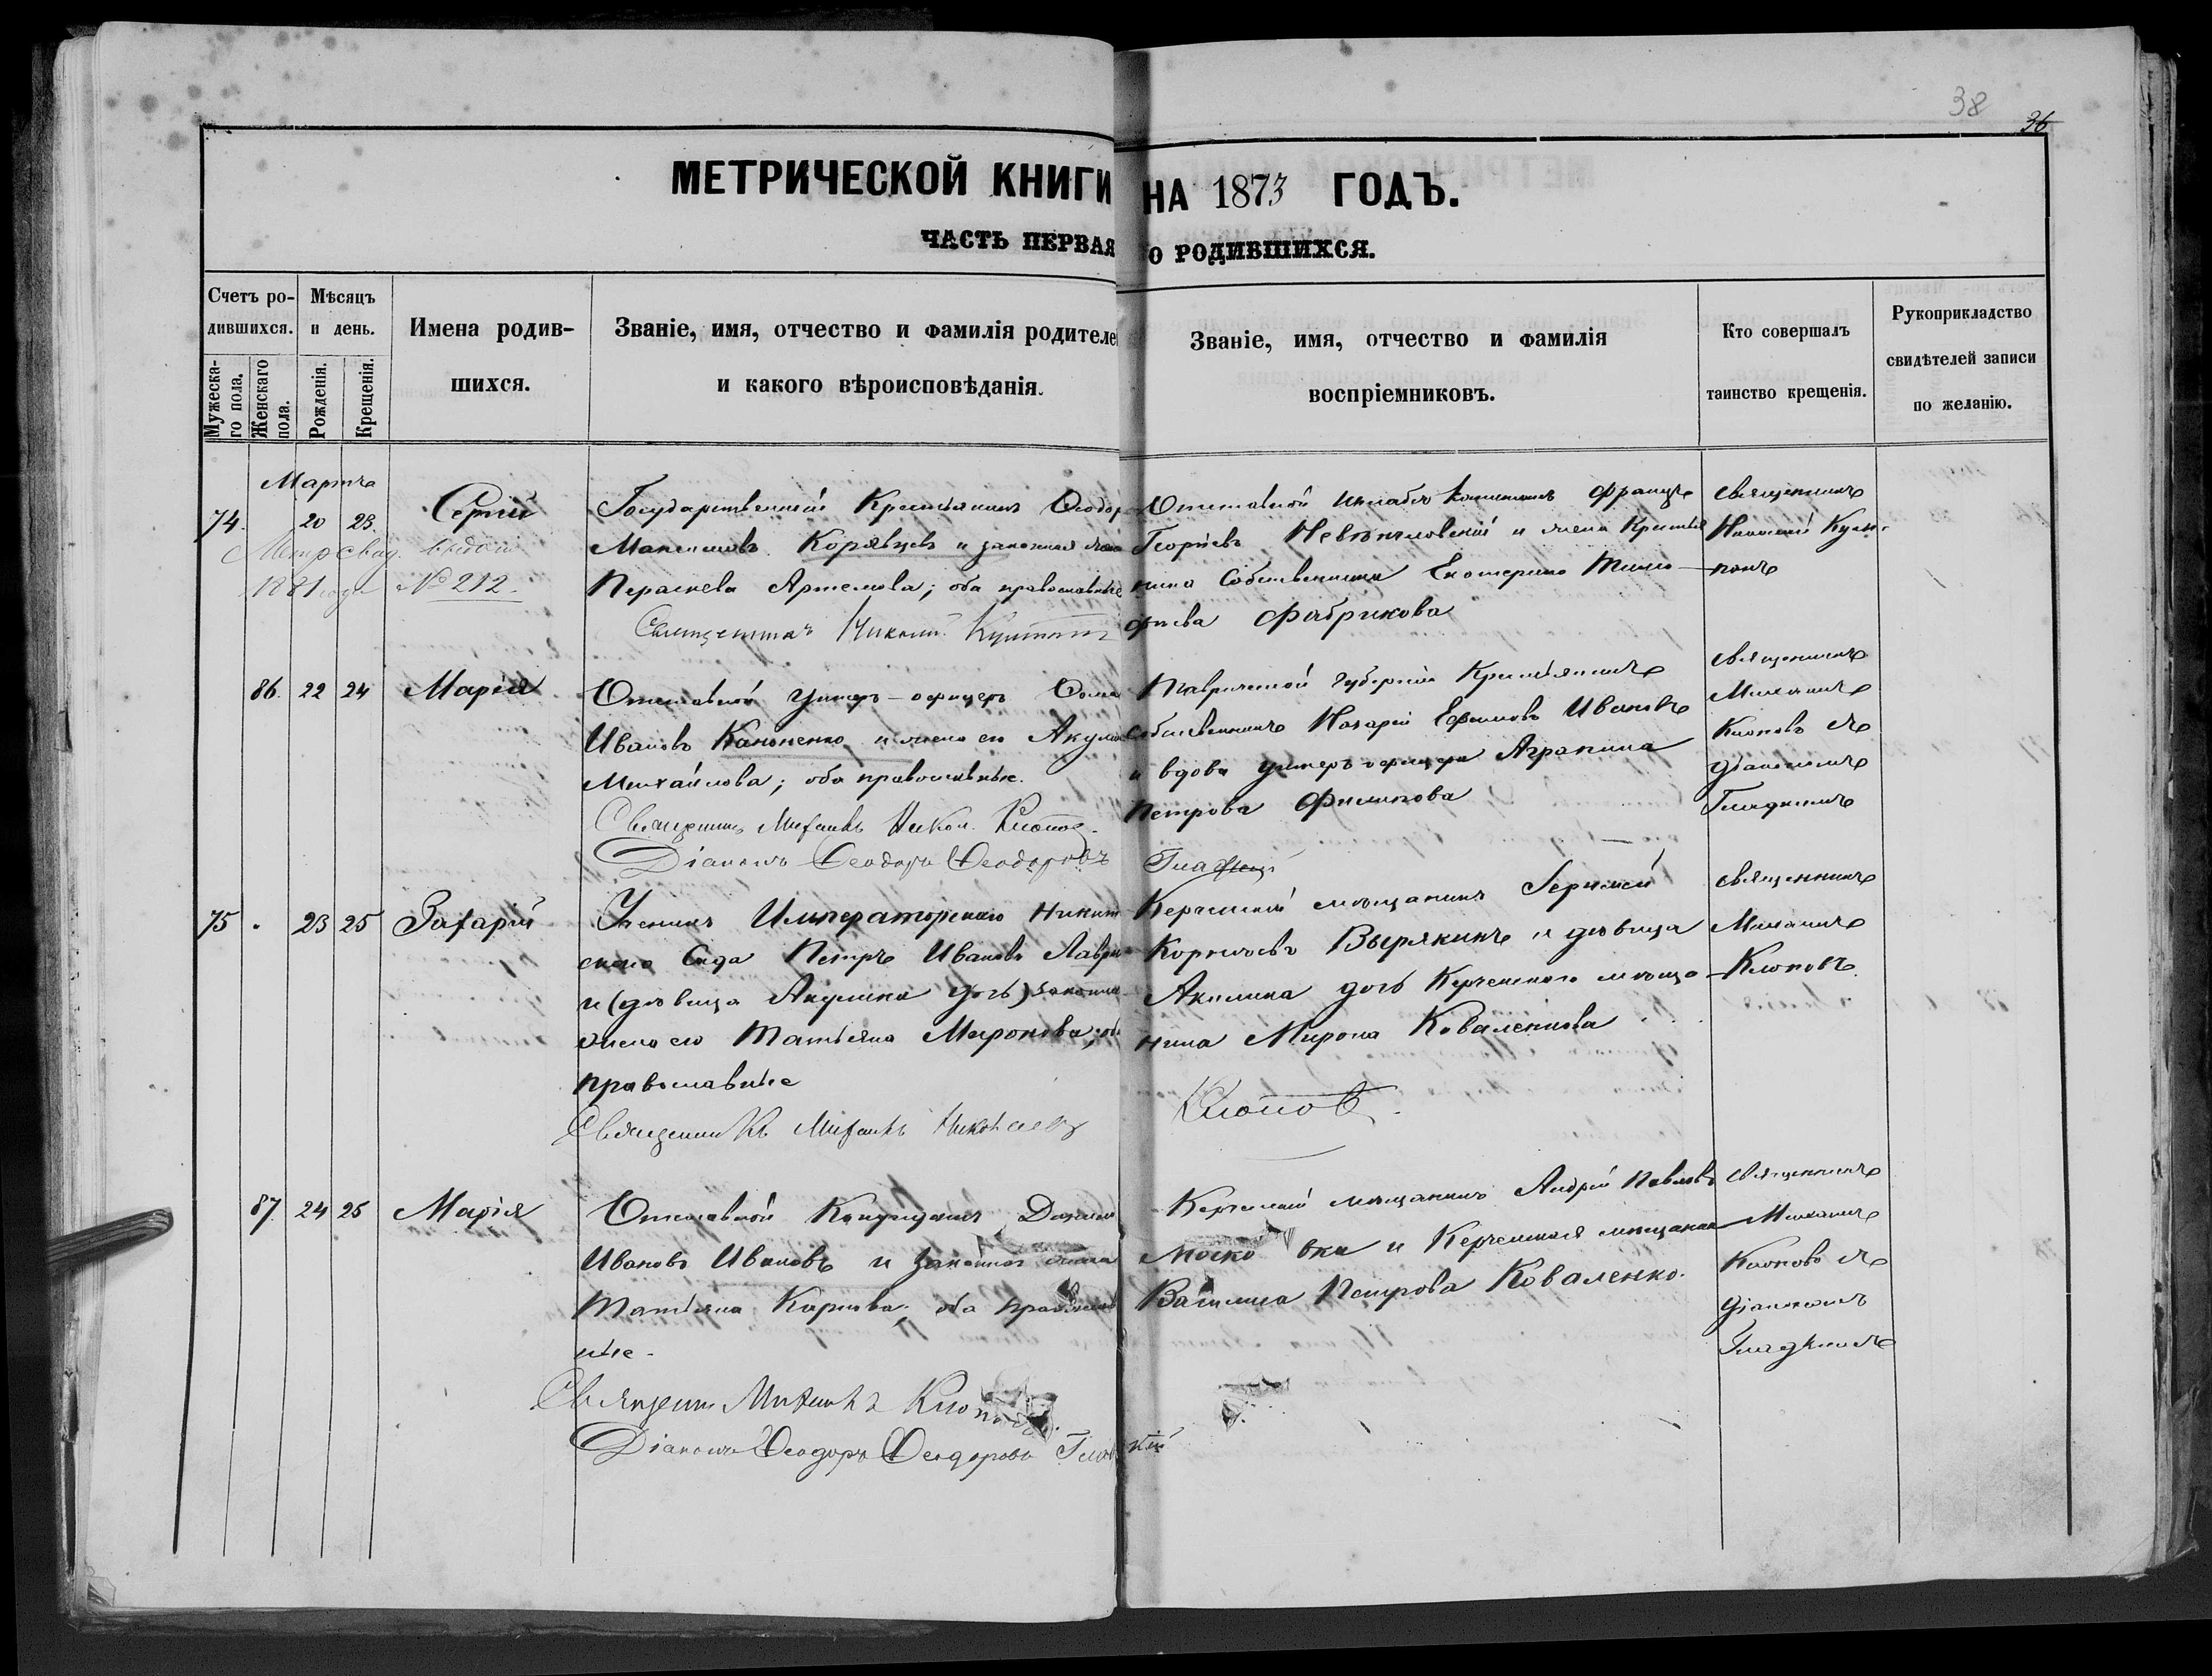 38
36
МЕТРИЧЕСКОЙ КНИГИ НА 1873 ГОДЪ.
ЧАСТЬ ПЕРВАЯ О РОДИВШИХСЯ.
Счетъ ро-
дившихся.
Мужеска-
го пола.
Женскаго
пола.
Мѣсяцъ
и день.
Рожденія.
Крещенія.
Имена родив-
шихся.
Званіе, имя, отчество и фамилія родителе
и какого вѣроисповѣданія.
Званіе, имя, отчество и фамилія
воспріемниковъ.
Кто совершалъ
таинство крещенія.
Рукоприкладство
свидѣтелей записи
по желанію.
Марта
74. 20 23. Сергій
Метр свид. выдано
1881 года № 212.
Государственный Крестьянинъ Ѳеодоръ
Максимовъ Корявцевъ и законная жена
Параскева Артемова; оба православные
Священникъ Николай
Отставной Штабсъ Капитанъ Францъ
Георгіевъ и жена Крестья
нина Собственника Екатерина Тимо-
фѣева Фабрикова
Священникъ
Николай
86. 22 24 Марія
Отставной Унтеръ-офицеръ Ѳома
Ивановъ Кононенко и жена его Акули
Михайлова; оба православные.
Священникъ Михаилъ Никол. Клоповъ
Діаконъ Ѳеодоръ Ѳеодоровъ Гладкій
Таврической губерніи Крестьянинъ
Собственникъ Назарій Ефимовъ Ивановъ
и вдова унтеръ-офицера Агрипина
Петрова Филипова
Священникъ
Михаилъ
Клоповъ съ
діакономъ
Гладкимъ
75 . 23 25 Захарій
Ученикъ Императорскаго Никит
скаго Сада Петръ Ивановъ Лаври
и (дѣвица Акулина дочь) законная
жена его Татьяна Миронова; оба
православные
Священникъ Михаилъ Николаевъ
Клоповъ
Керченскій мѣщанинъ Сергѣй
Корнѣевъ Вырякинъ и дѣвица
Акилина дочь Керченскаго мѣща-
нина Мирона Коваленкова
Священникъ
Михаилъ
Клоповъ.
87. 24 25 Марія
Отставной Кандидатъ
Ивановъ Ивановъ и законная жена
Татьяна Карпова; оба православ
ные.
Священникъ Михаилъ Клоповъ.
Діаконъ Ѳеодоръ Ѳеодоровъ Гладкій
Керченскій мѣщанинъ Андрей Павловъ
Моско вка и Керченская мѣщанка
Василиса Петрова Коваленко.
Священникъ
Михаилъ
Клоповъ съ
діакономъ
Гладкимъ